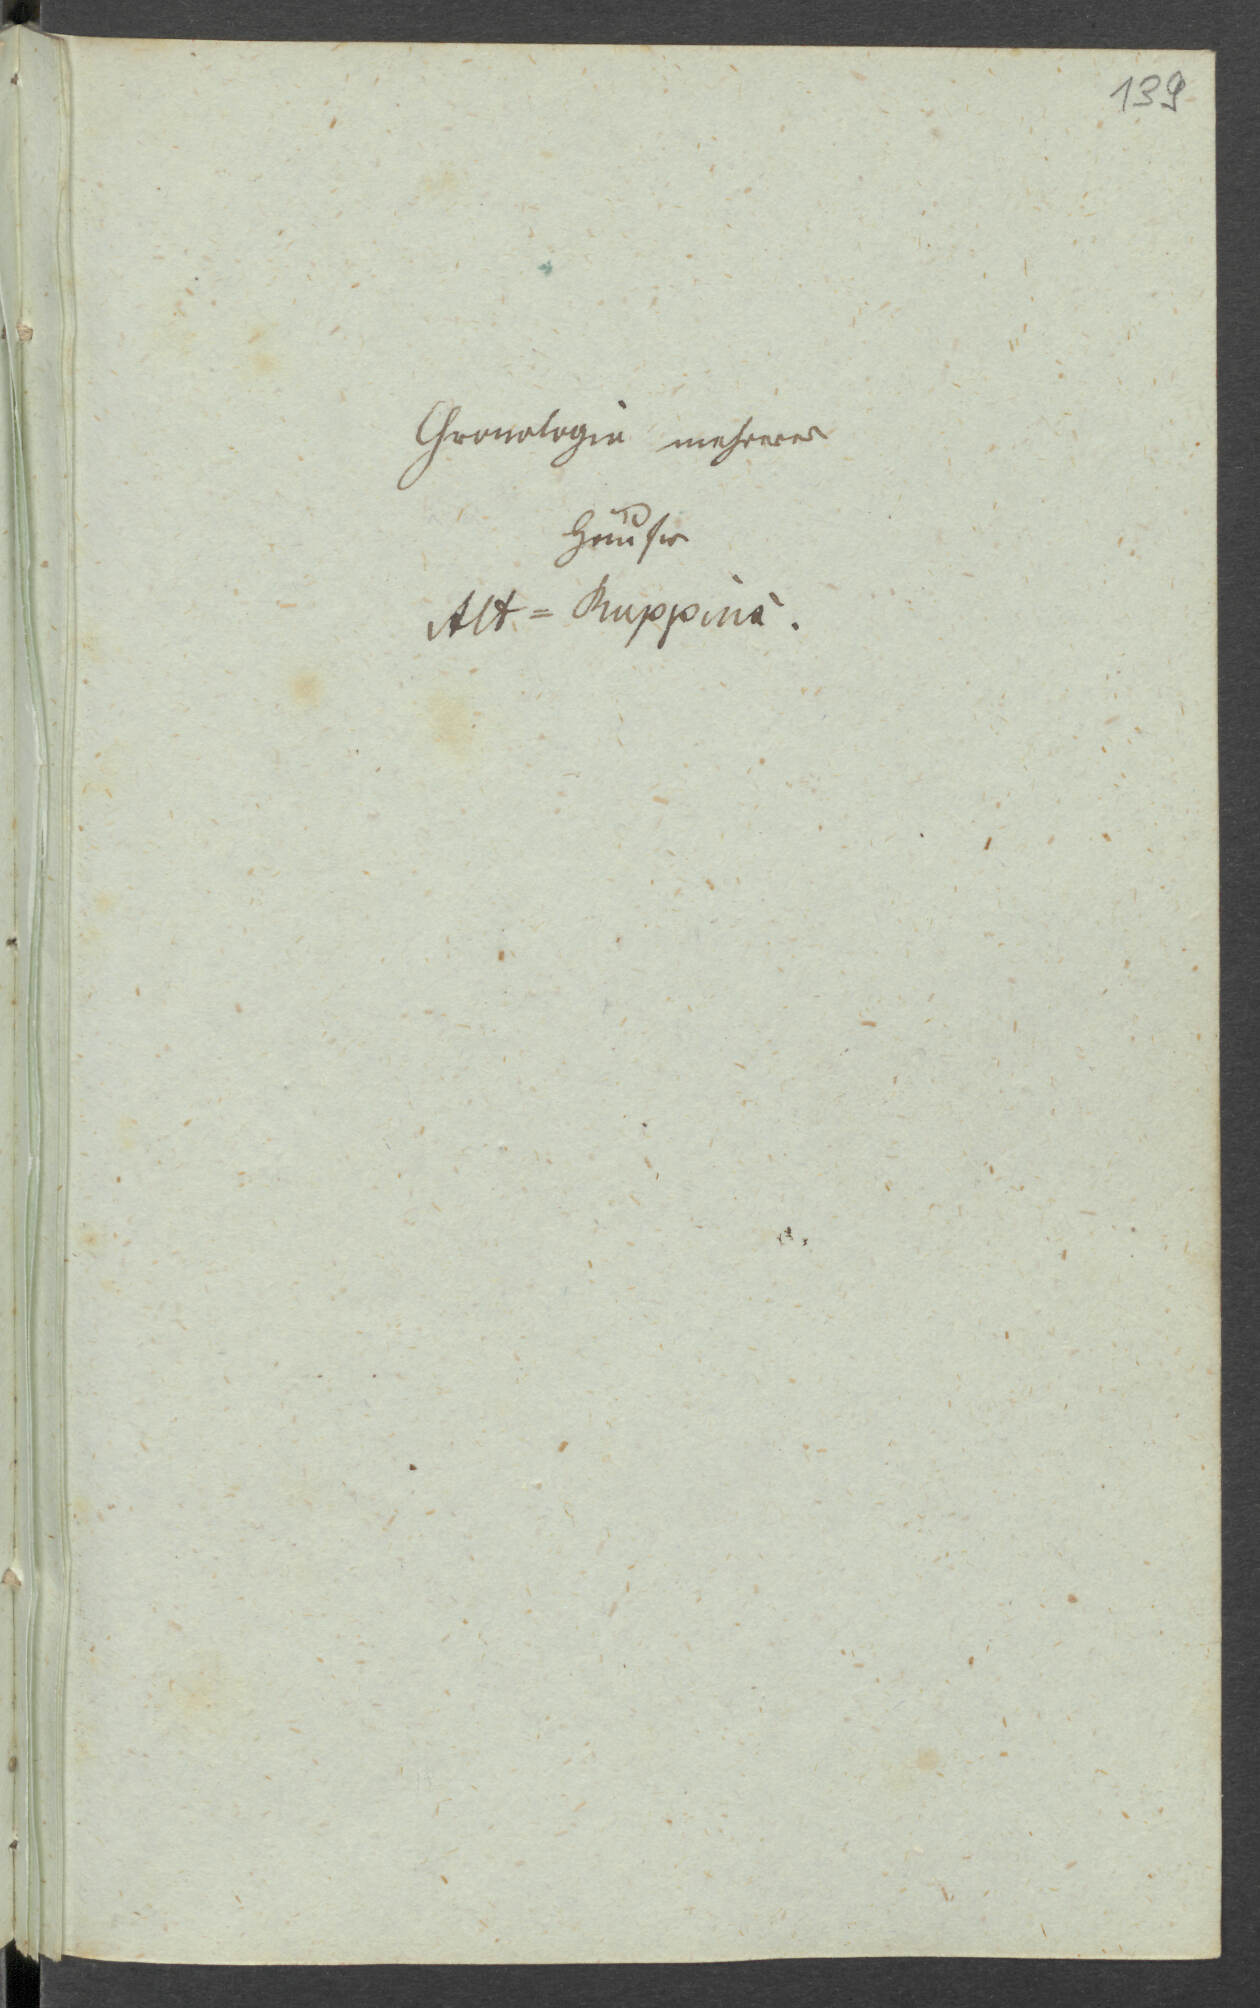 139
Chronologie mehrerer
Häuser
Alt=Ruppin's.